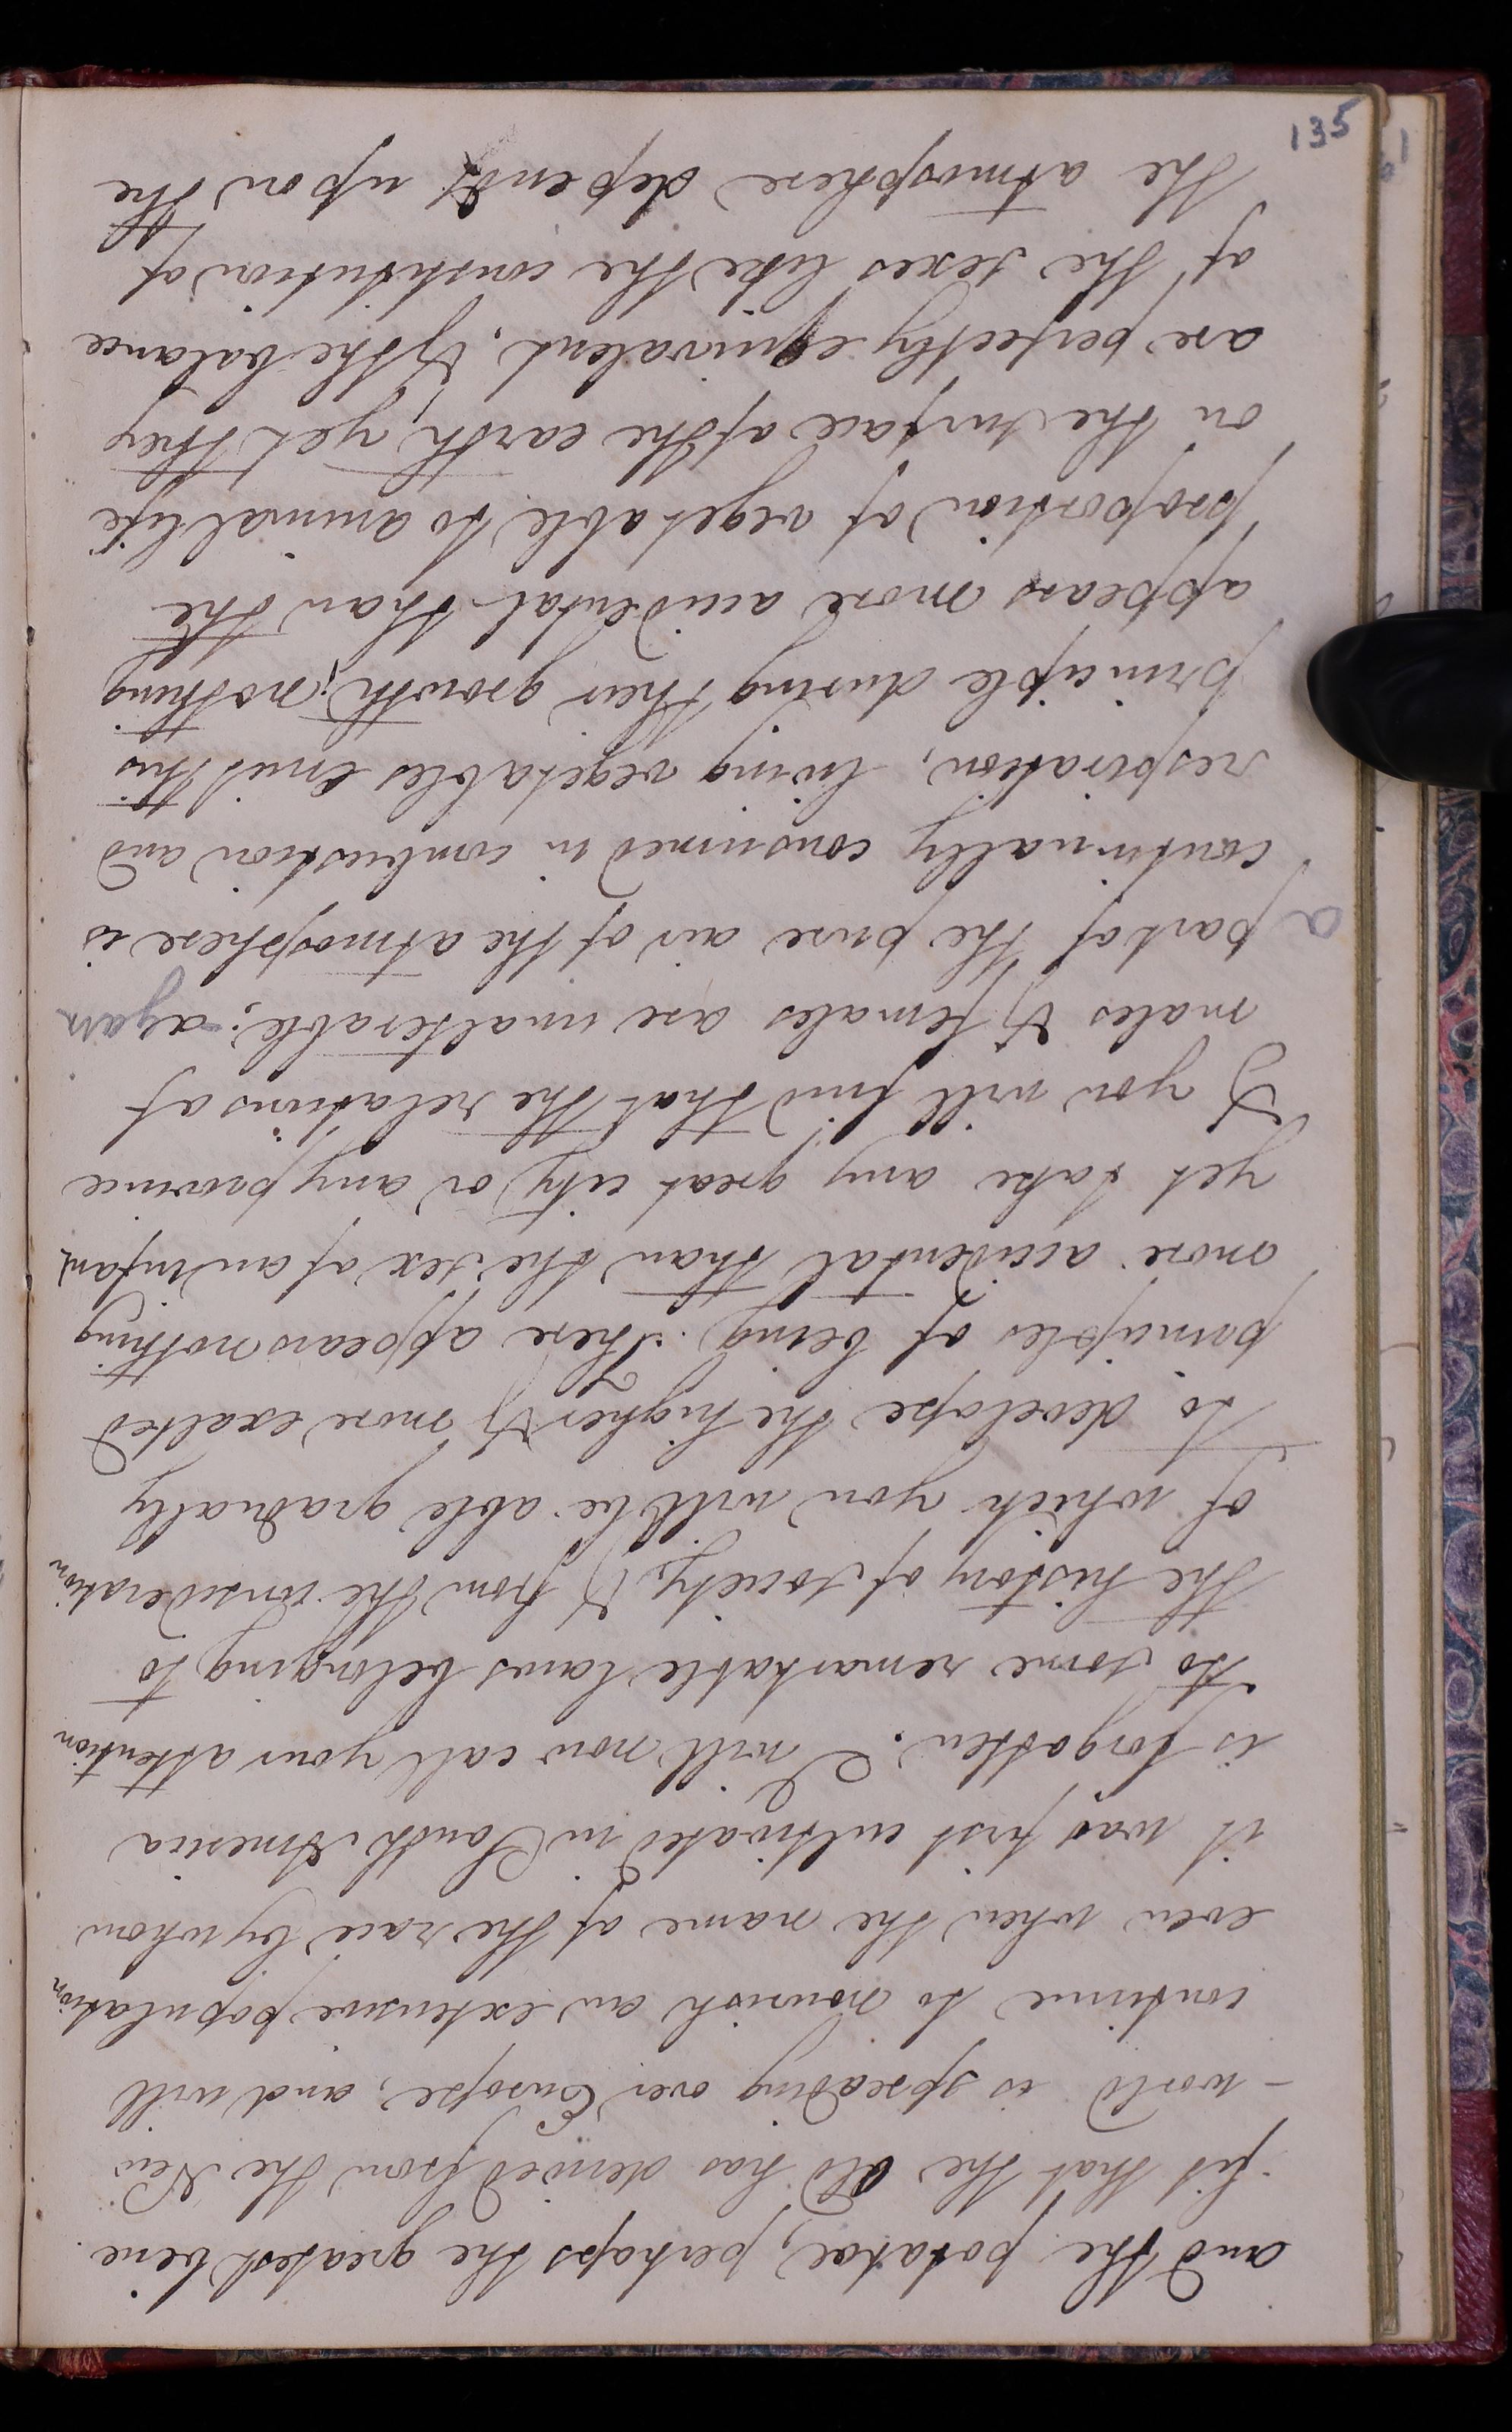 and the potatoe, perhaps the greatest bene
fit that the Old has derived from the New
- world is spreading over Europe, and will
continue to nourish an extensive population
even when the name of the race by whom
it was first cultivated in South America
is forgotten. I will now call your attention
to some remarkable laws belonging to
the history of society, & from the consideration
of which you will be able gradually
to develope the higher & more exalted
principles of being. There appears nothing
more accidental than the sex of an infant,
yet take any great city or any province
& you will find that the relations of
males & females are unalterable; again
a part of the pure air of the atmosphere is
continually consumed in combustion and
respiration, living vegetables emit this
principle during their growth; nothing
appears more accidental than the
proportion of vegetable to animal life
on the surface of the earth, yet they
are perfectly equivalent, & the balance
of the sexes like the constitution of
the atmosphere depends upon the
135